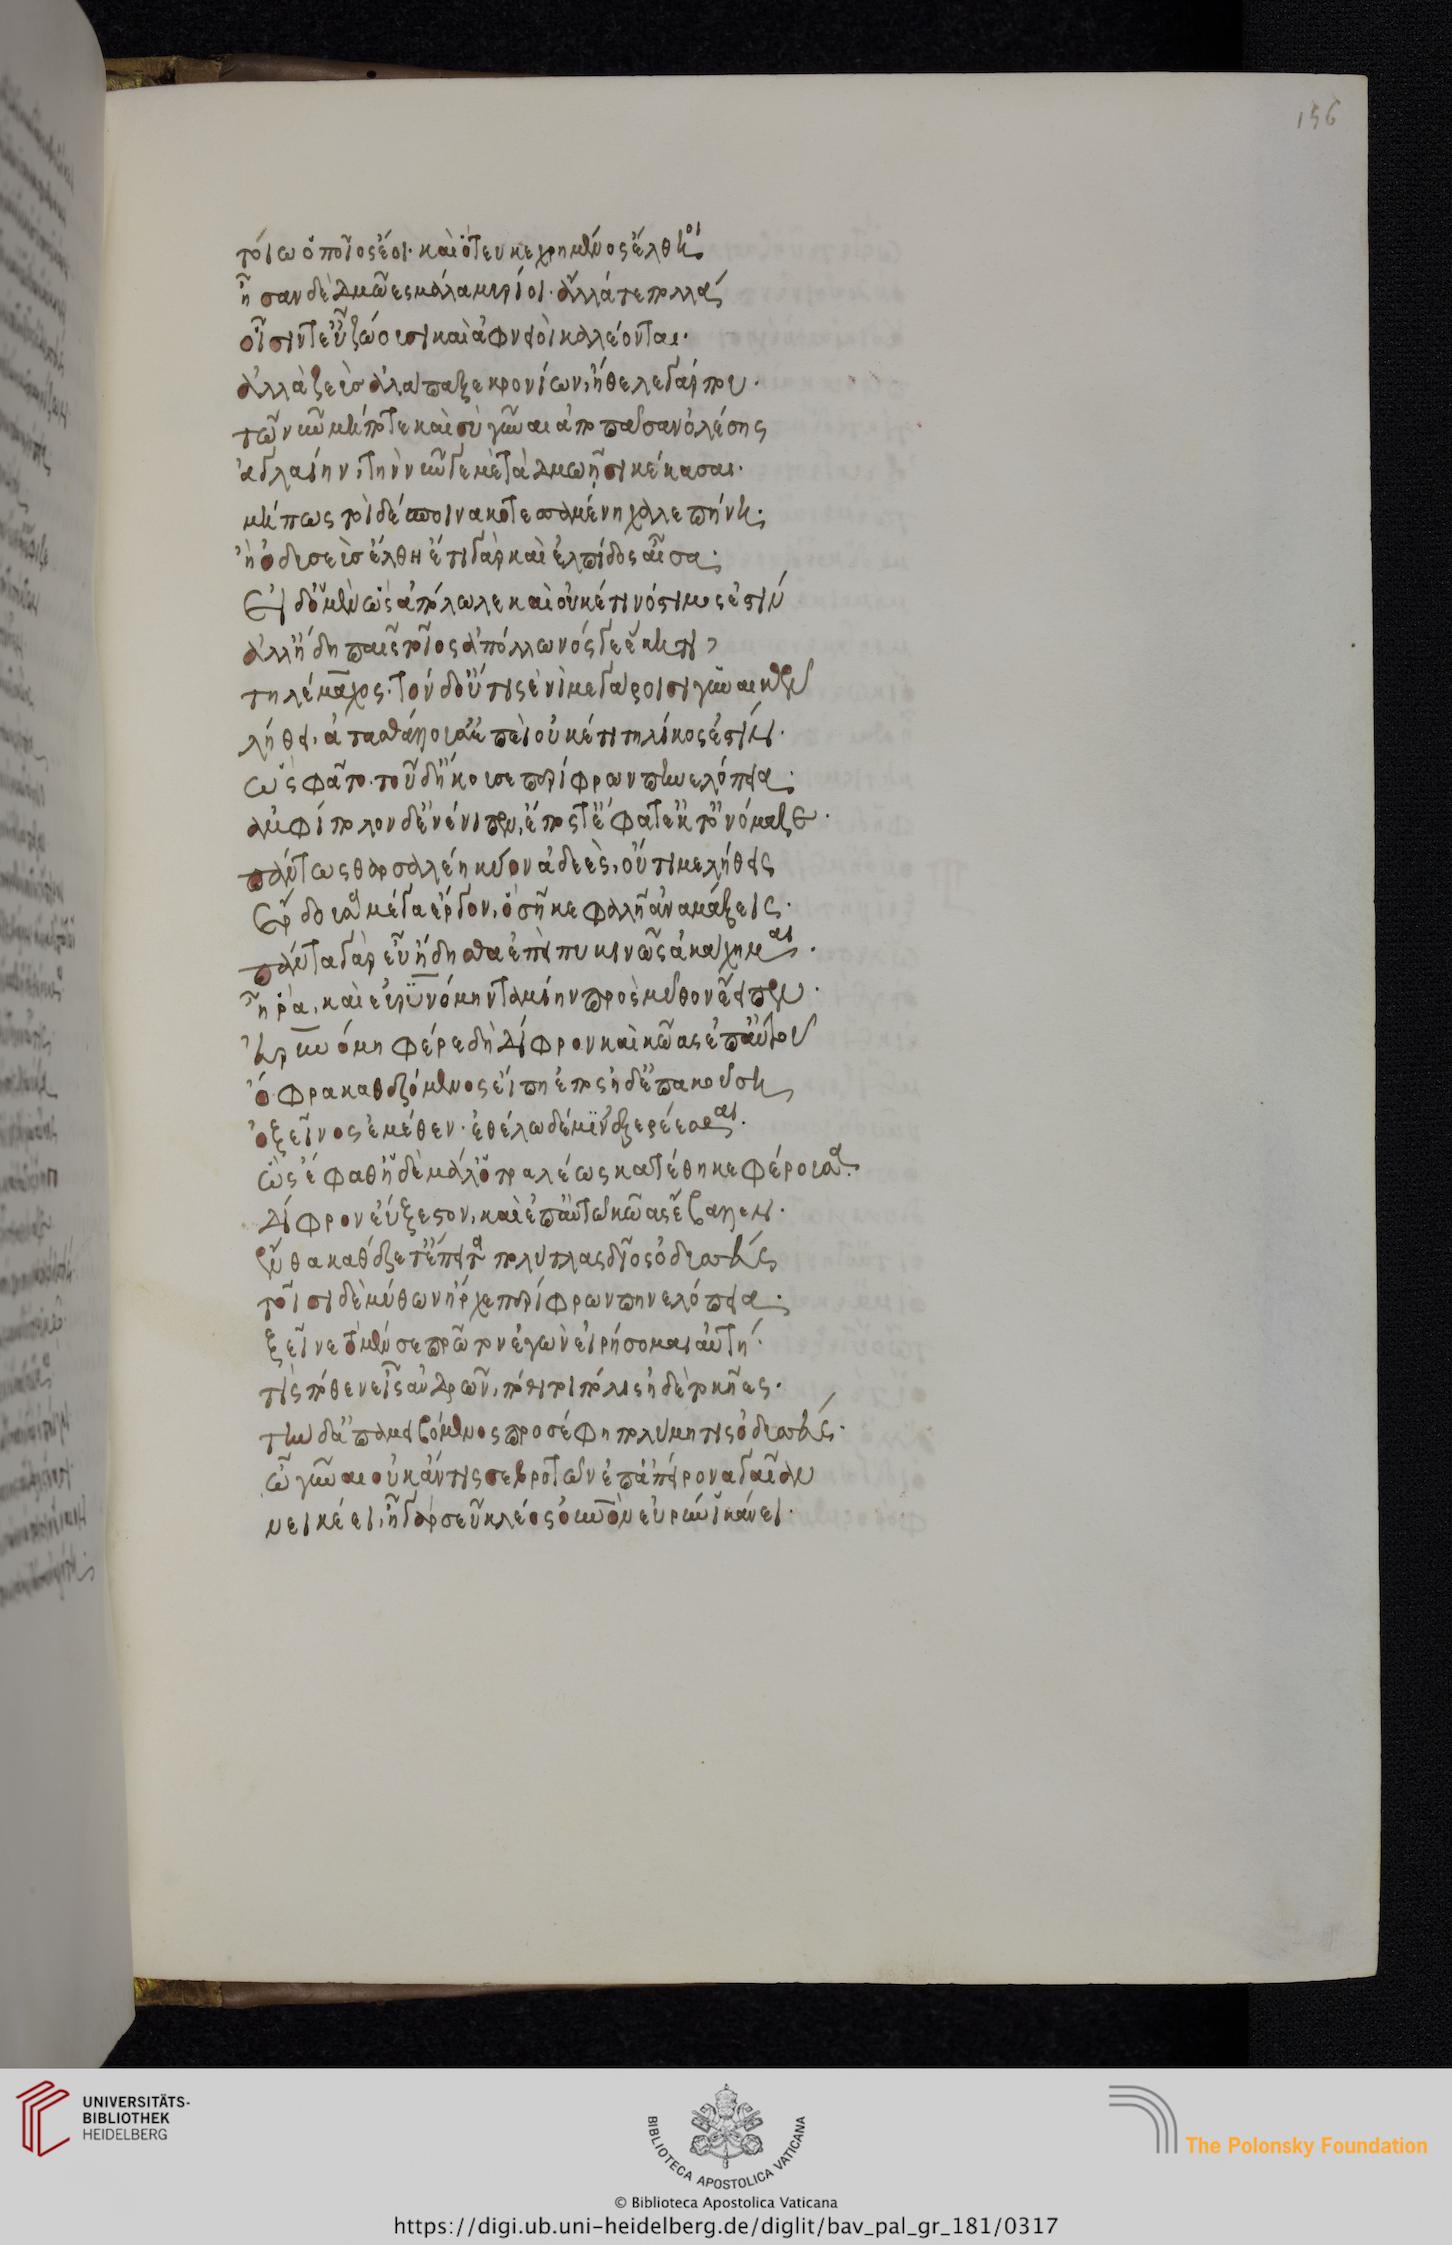 156
τοίω ὁποῖος ἔοι· καὶ ὅτευ κεχρημένος ἔλθοι
ἦσαν δὲ δμῶες μάλα μυρίοι· ἄλλά τε πολλά
οἷσίν τ' εὖ ζώουσι καὶ ἀφνειοὶ καλέονται·
ἀλλὰ ζεὺς ἀλάπαξε κρονίων, ἤθελε γάρ που·
τῶ νῦν μήποτε καὶ σὺ γύναι ἀπὸ πᾶσαν ὀλέσης
ἀγλαίην, τὴν νῦν γε μετὰ δμωῆσι κέκασαι·
μήπως τοι δέσποινα κοτεσσαμένη χαλεπήνη·
ἢ ὀδυσεὺς ἔλθη ἔτι γὰρ καὶ ἐλπίδος αἶσα·
Εἰ δ' ὁ μὲν ὣς ἀπόλωλε καὶ οὐκέτι νόστιμός ἐστιν
ἀλλ' ἤδη παῖς τοῖος ἀπόλλωνός γε ἕκητι,
τηλέμαχος· τὸν δ' οὔτις ἐνὶ μεγάροισι γυναικῶν
λήθει, ἀτασθάλλουσ' ἐπεὶ οὐκέτι τηλίκος ἐστίν·
ὣς φάτο· τοῦ δ' ἤκουσε περίφρων πηνελόπεια·
ἀμφίπολον δ' ἐνένιπεν, ἔπος τ' ἔφατ' ἔκ τ' ὀνόμαζε·
πάντως θαρσαλέη κύον ἀδεὲς, οὔτι με λήθεις
Ἔρδουσα μέγα ἔργον, ὃ σῆ κεφαλῆ ἀναμάξεις·
πάντα γὰρ εὖ ἤδησθα ἐπεὶ πυκινῶς ἀκάχημαι·
ἦ ῥα, καὶ εὐρυνόμην ταμίην πρὸς μῦθον ἔειπεν·
Εὐρυνόμη φέρε δὴ δίφρον καὶ κῶας ἐπ' αὐτοῦ
ὄφρα καθεζόμενος εἴπη ἔπος ἠδ' ἐπακούση
ὁ ξεῖνος ἐμέθεν· ἐθέλω δέ μιν ἐξερέεσθαι·
ὣς ἔφαθ' ἡ δὲ μάλ' ὀτραλέως κατέθηκε φέρουσα
δίφρον εὔξεστον, καὶ ἐπ' αὐτῶ κῶας ἔβαλλεν·
ἔνθα καθέζετ' ἔπειτα πολύτλας δῖος ὀδυσσεύς
τοῖσι δὲ μύθων ἦρχε περίφρων πηνελόπεια·
ξεῖνε τὸ μέν σε πρῶτον ἐγὼν εἰρήσομαι αὐτή·
τίς πόθεν εἶς ἀνδρῶν, πόθι τοι πόλις ἠδὲ τοκῆες·
τὴν δ' ἀπαμειβόμενος προσέφη πολύμητις ὀδυσσεύς·
ὦ γύναι οὐκ ἄν τις σε βροτῶν ἐπ' ἀπείρονα γαῖαν
νεικέει, ἦ γάρ σευ κλέος οὐρανὸν εὐρὺν ἱκάνει·
UNIVERSITÄTS-
BIBLIOTHEK
HEIDELBERG
BIBLIOTECA APOSTOLICA VATICANA
The Polonsky Foundation
© Biblioteca Apostolica Vaticana
https://digi.ub.uni-heidelberg.de/diglit/bav_pal_gr_181/0317